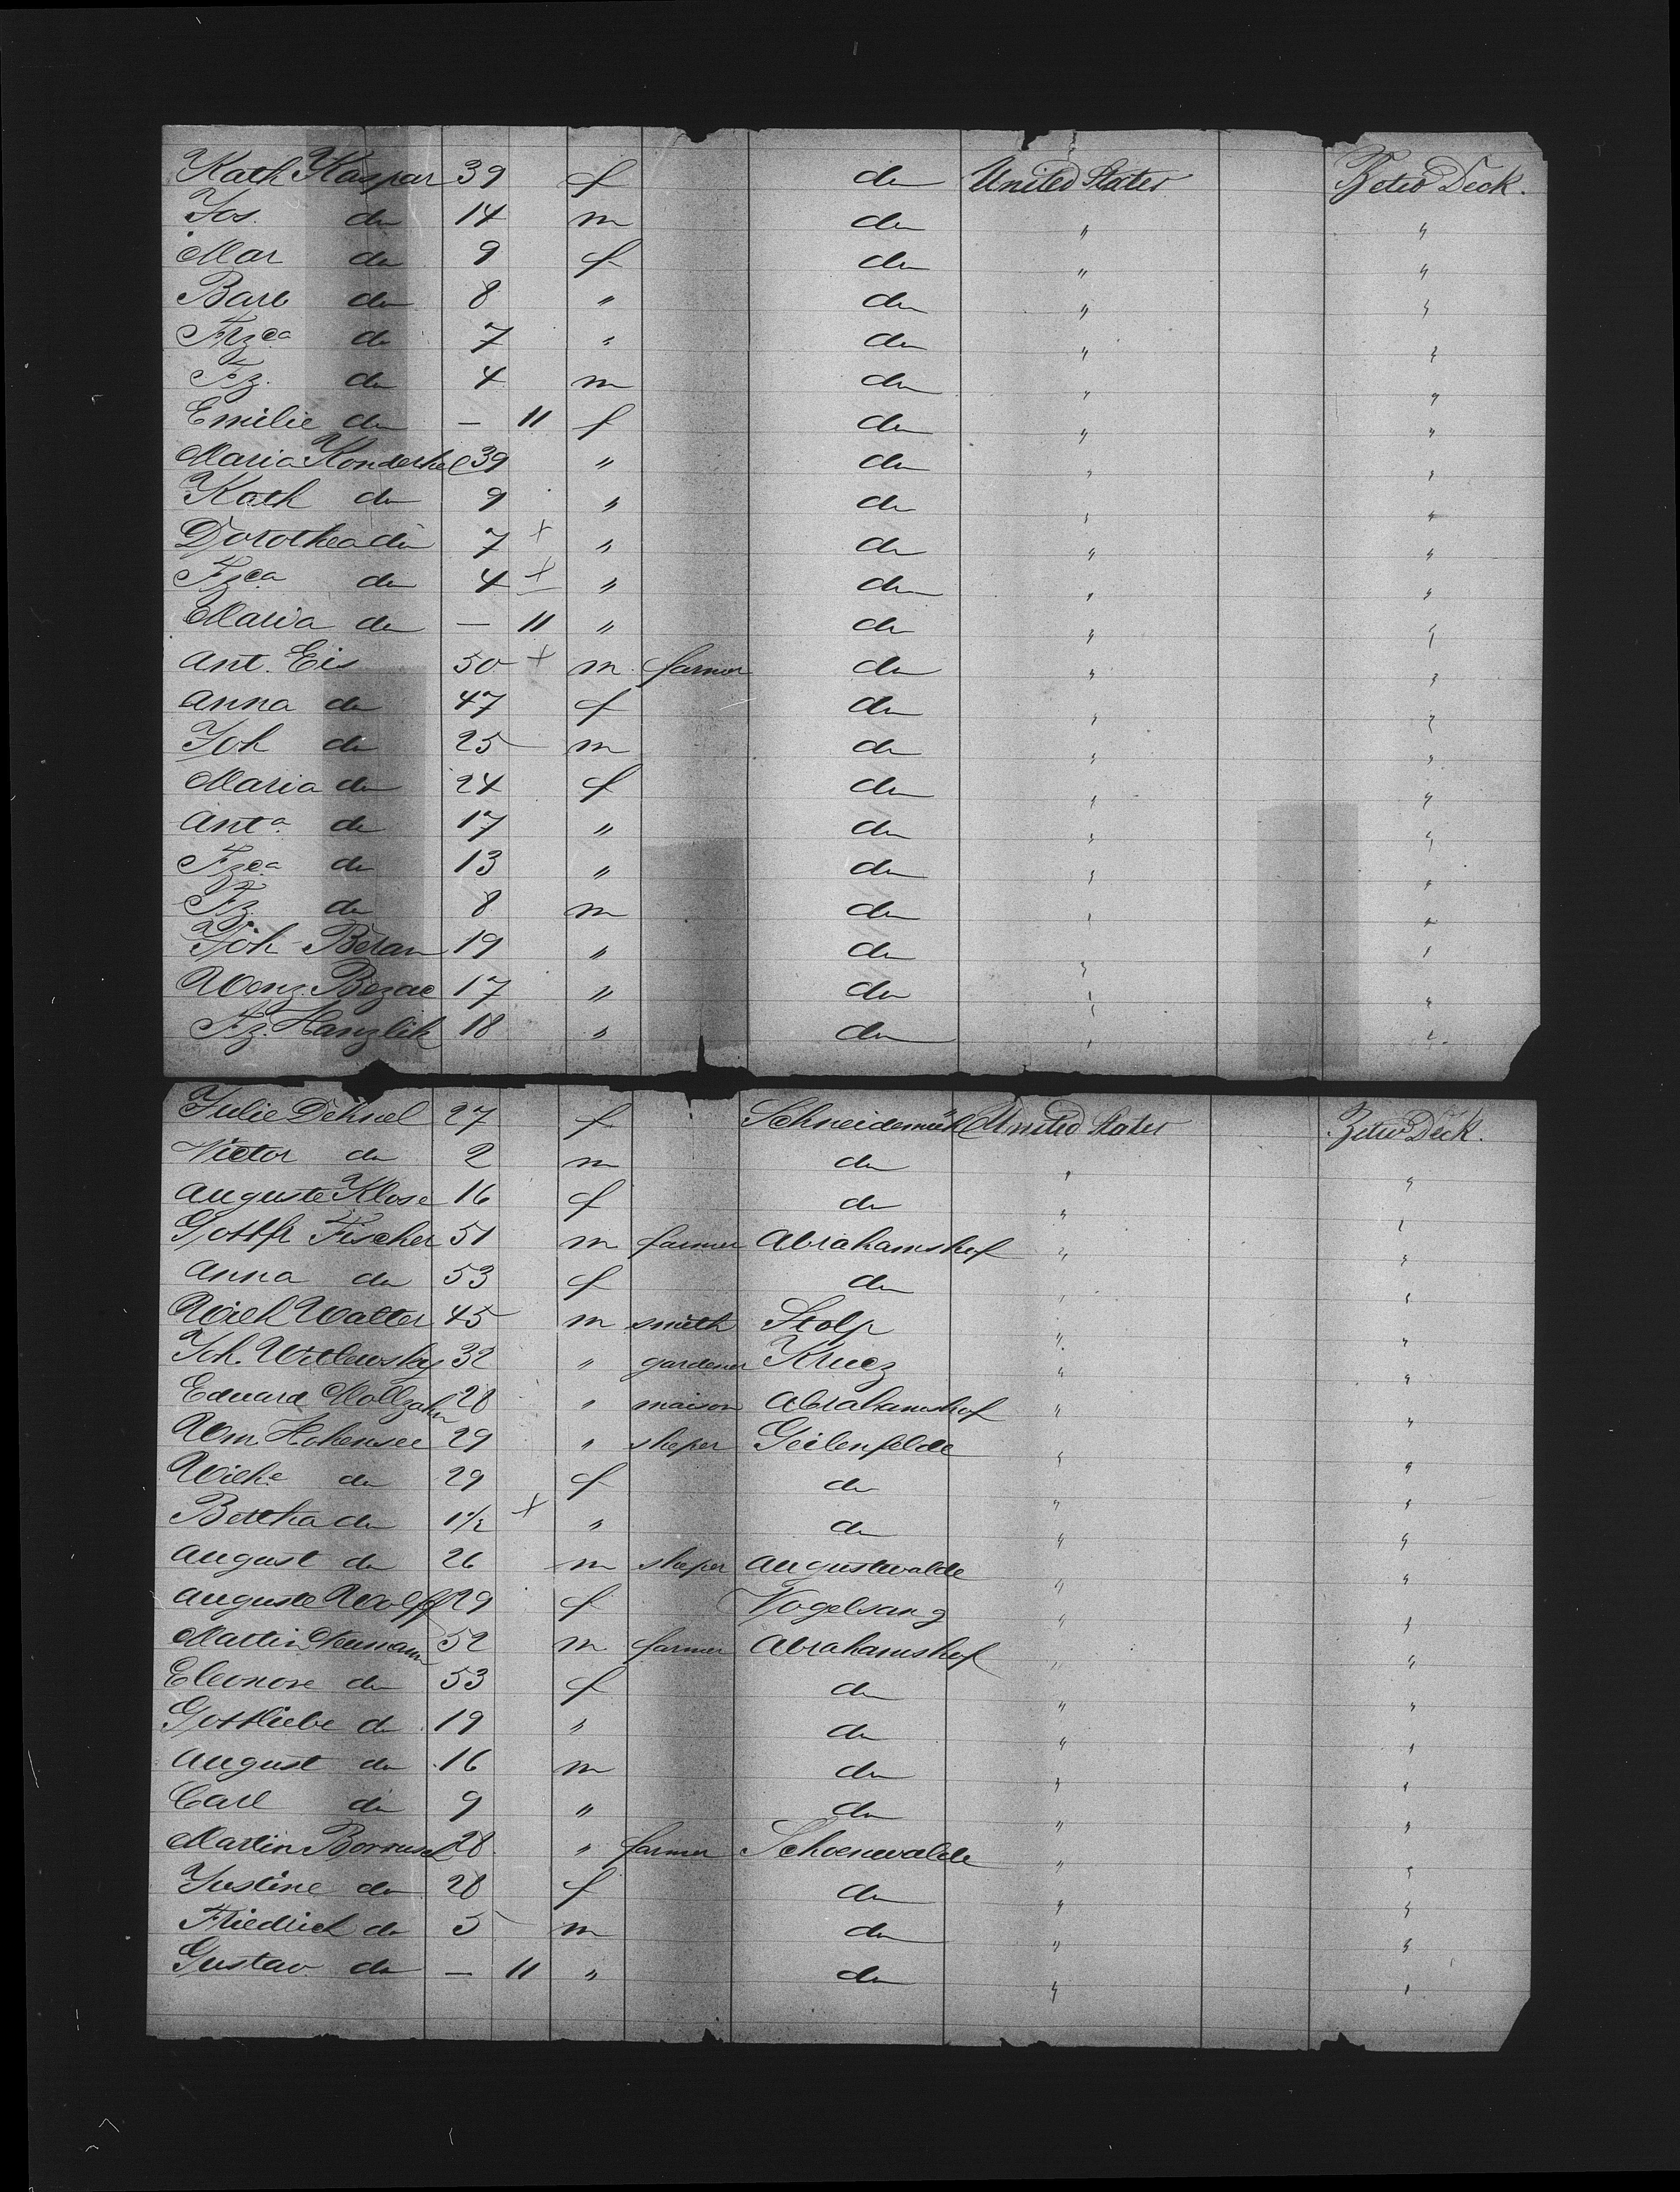 Kath Kaspar 39 f do United States Betw Deck.
Jos. do 14 m do " "
Mar do 9 f do " "
Barb do 8 " do " "
Frzca do 7 " do " "
Fz. do 4 m do " "
Emilie do — 11 f do " "
Maria Konderhel 39 " do " "
Kath do 9 " do " "
Dorothea do 7 + " do " "
Fzca do 4 + " do " "
Maria do — 11 " do " "
Ant. Eis 50 + m farmer do " "
Anna do 47 f do " "
Joh do 25 m do " "
Maria do 24 f do " "
Anta do 17 " do " "
Fzca do 13 " do " "
Fz do 8 m do " "
Joh Beran 19 " do " "
Wenz. Bezac 17 " do " "
Fz. Hanzlik 18 " do " "
Julie Dehnel 27 f Schneidemühl United States Betw Deck.
Victor do 2 m do " "
Auguste Klose 16 f do " "
Gottfr Fischer 51 m farmer Abrahamshof " "
Anna do 53 f do " "
Wilh Walter 45 m smith Stolp " "
Joh. 32 " gardener " "
Eduard Mollzahn 28 " maison Abrahamshof " "
Wm Hohensee 29 " sheper Geilenfelde " "
Wilhe do 29 f do " "
Bertha do 1 1/2 + " do " "
August do 26 m sheper Augustwalde " "
Auguste Wolff 29 f Vogelsang " "
Martin Neumann 52 m farmer Abrahamshof " "
Eleonore do 53 f do " "
Gottliebe do 19 " do " "
August do 16 m do " "
Carl do 9 " do " "
Martin 28 " farmer Schoenwalde " "
Justine do 28 f do " "
Friedrich do 5 m do " "
Gustav do — 11 " do " "